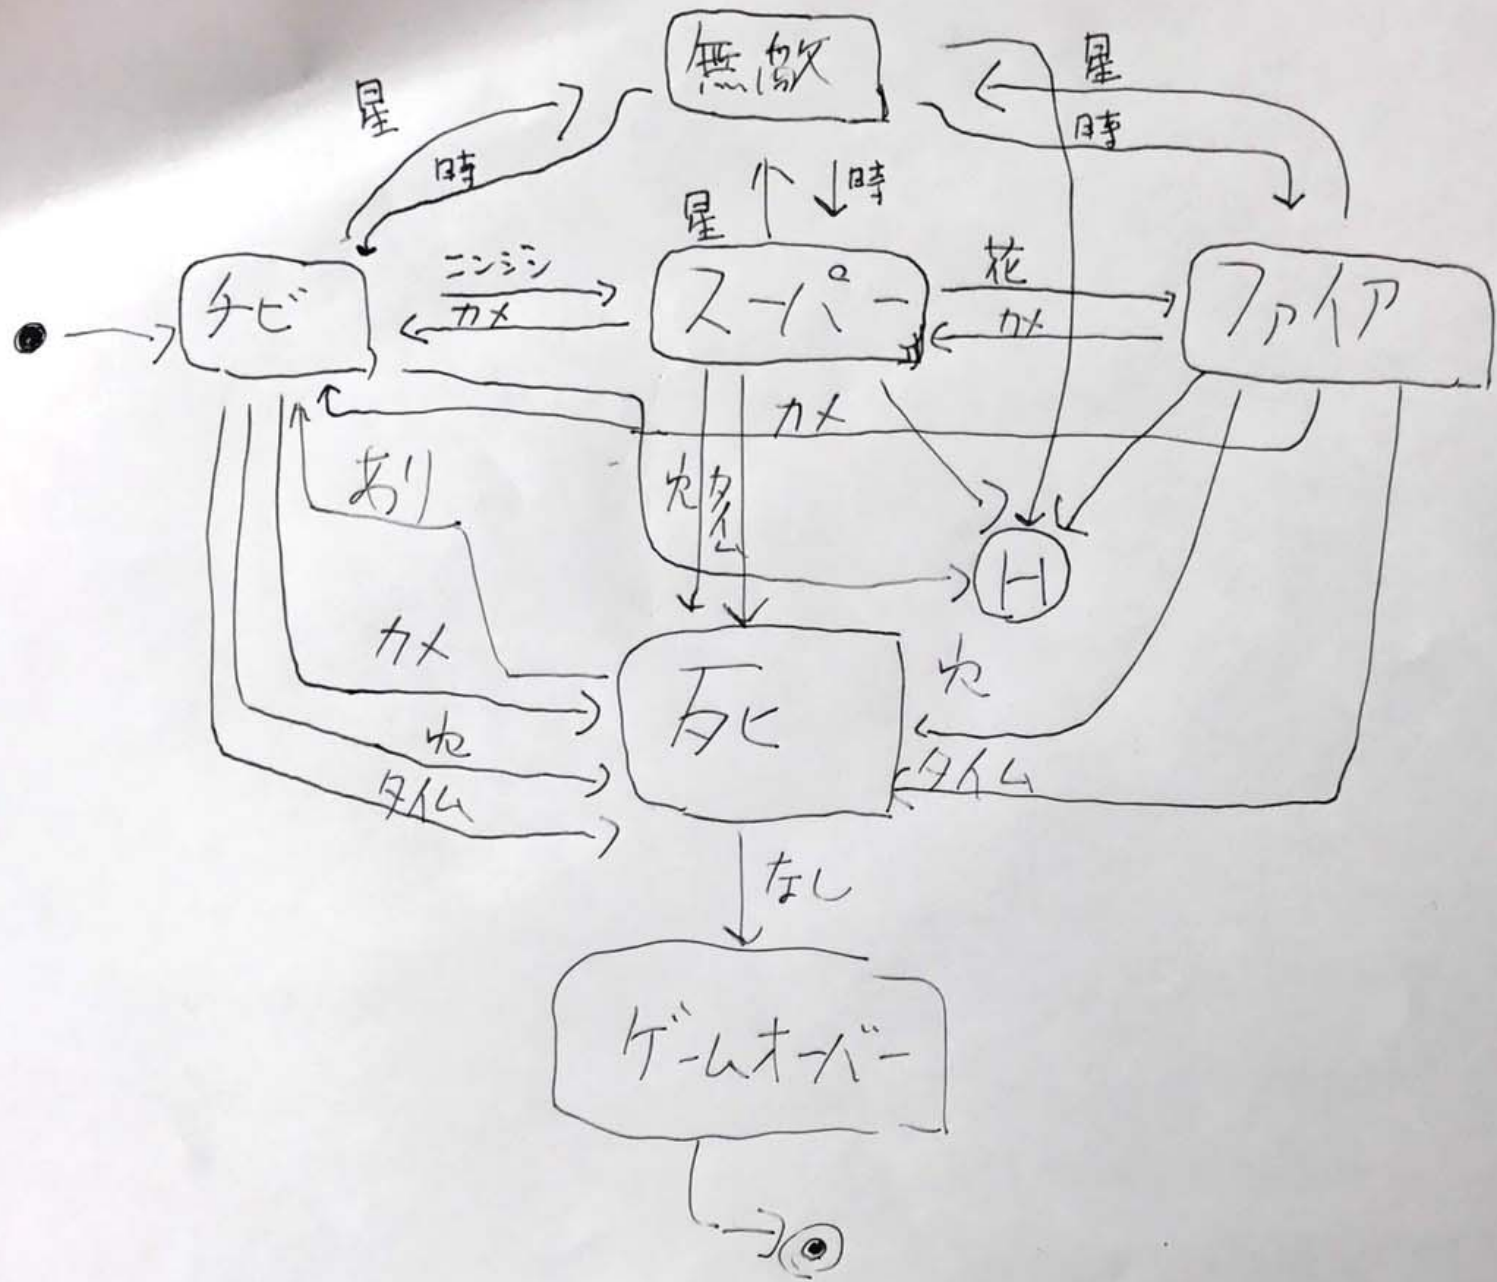 無敵
星
星
時
時
時
星
ニンジン
花
チビ
カメ
スーパー
カメ
ファイア
カメ
あり
穴
タイム
H
カメ
死
穴
穴
タイム
タイム
なし
ゲームオーバー